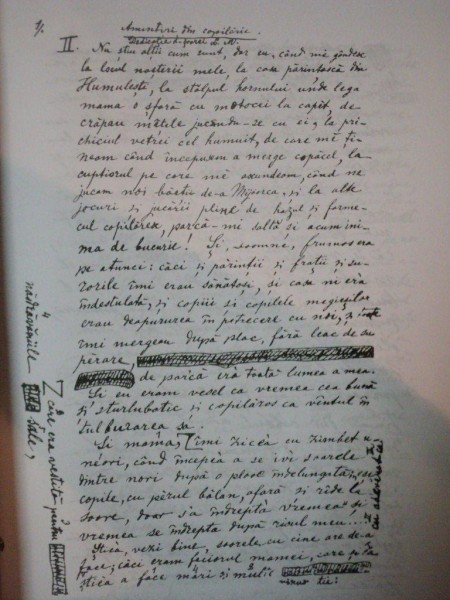 Amintiri din copilărie
Dedicație d-șoarei L. M.
II. Nu știu alții cum sunt, dar eu, când mă gîndesc
la locul nașterii mele, la casa părintească din
Humulești, la stâlpul hornului unde lega
mama o sfară cu motocei la capăt, de
crăpau mâțele jucându-se cu ei, la pri-
chiciul vetrei cel humuit, de care mă ți-
neam când începusem a merge copăcel, la
cuptiorul pe care mă ascundeam, când ne
jucam noi băețiĭ de-a Mijoarca, și la alte
jocuri și jucării pline de hazul și farme-
cul copilăresc, parcă-mi saltă și acum ini-
ma de bucurie! Și, Doamne, frumos era
pe atunci: căci și părinții și frații și su-
rorile îmi erau sănătoși, și casa ni era
îndestulată, și copiii și copilele megieșilor
erau deapururea în petrecere cu noi, și toate
îmi mergeau după plac, fără leac de su-
părare,
de parcă era toată lumea a mea.
Și eu eram vesel ca vremea cea bună
și sturlubatic și copilăros ca vântul în
tulburarea sa.
Și mama, îmi zicea cu zimbet u-
neori, când începea a se ivi soarele
dintre nori după o ploae îndelungată: esi
copile, cu părul bălan, afară și rîde la
soare, doar s'a îndrepta vremea și
vremea se îndrepta după risul meu...
Știa, vezi bine, soarele cu cine are de-a
face, căci eram feciorul mamei, care
știea a face mari și multe
minunății:
care era vestită pentru
năzdrăvăniile
sale,